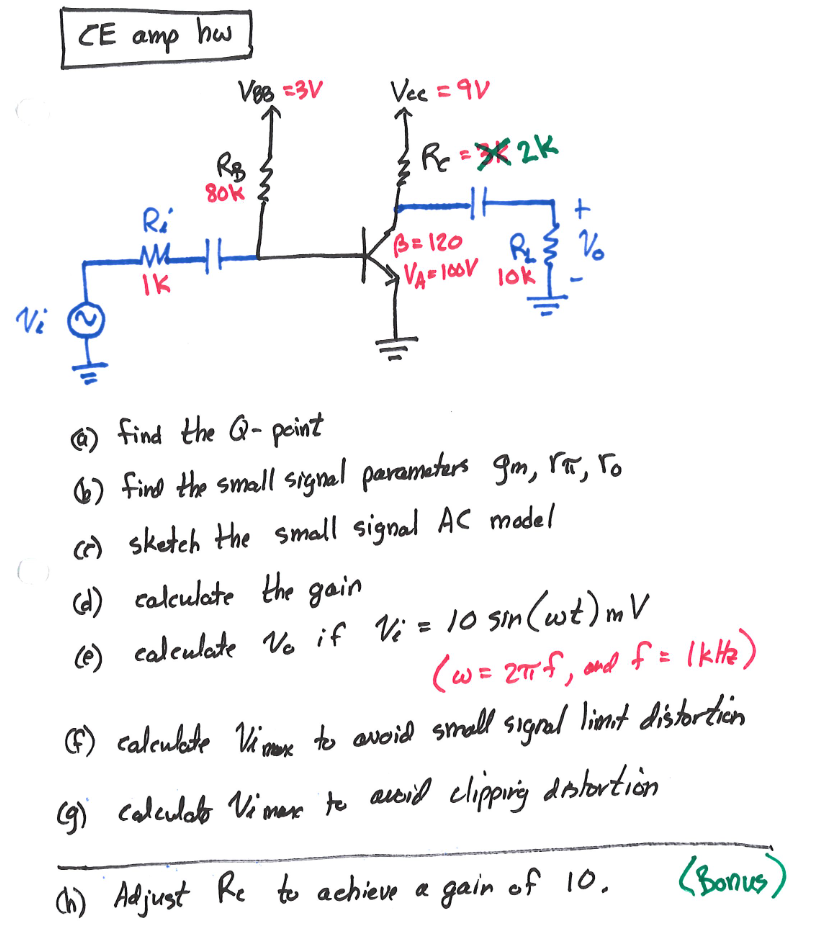 CE amp hw
VBB = 3V
Vcc = 9V
RB
80k
Rc = 3k 2k
Ri
1K
β = 120
VA = 100V
RL
10k
+
Vo
-
Vi
(a) find the Q-point
(b) find the small signal parameters gm, rπ, ro
(c) sketch the small signal AC model
(d) calculate the gain
(e) calculate Vo if Vi = 10 sin(ωt) mV
(ω = 2πf, and f = 1kHz)
(f) calculate Vi max to avoid small signal limit distortion
(g) calculate Vi max to avoid clipping distortion
(h) Adjust Rc to achieve a gain of 10. (Bonus)